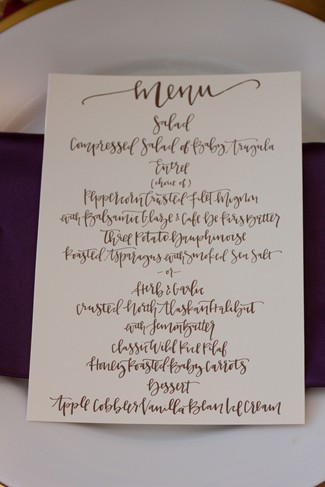 menu
Salad
Compressed Salad of Baby Arugula
Entreé
(choice of)
Peppercorn Crusted Filet Mignon
with Balsamic Glaze & Cafe De Paris Butter
Three Potato Dauphinoise
Roasted Asparagus with Smoked Sea Salt
-or-
Herb & Garlic
Crusted North Alaskan Halibut
with Lemon Butter
Classic Wild Rice Pilaf
Honey Roasted Baby Carrots
Dessert
Apple Cobbler Vanilla Bean Ice Cream